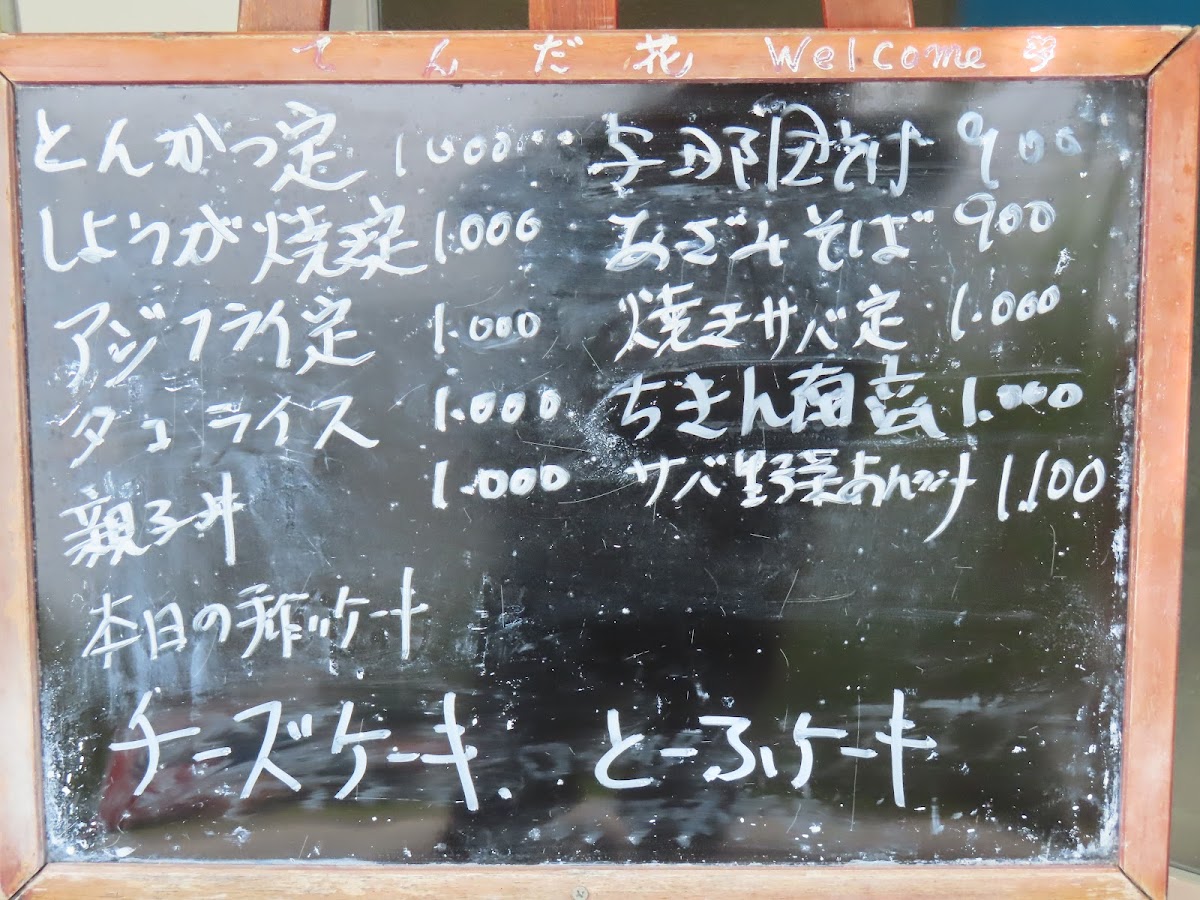 てんだ花 Welcome
とんかつ定 1000
しょうが焼定 1.000
アジフライ定 1.000
タコライス 1.000
親子丼 1.000
与那国そば 900
あざみそば 900
焼きサバ定 1.000
ちきん南蛮 1.000
サバ野菜あんかけ 1,100
本日の手作りケーキ
チーズケーキ、とーふケーキ